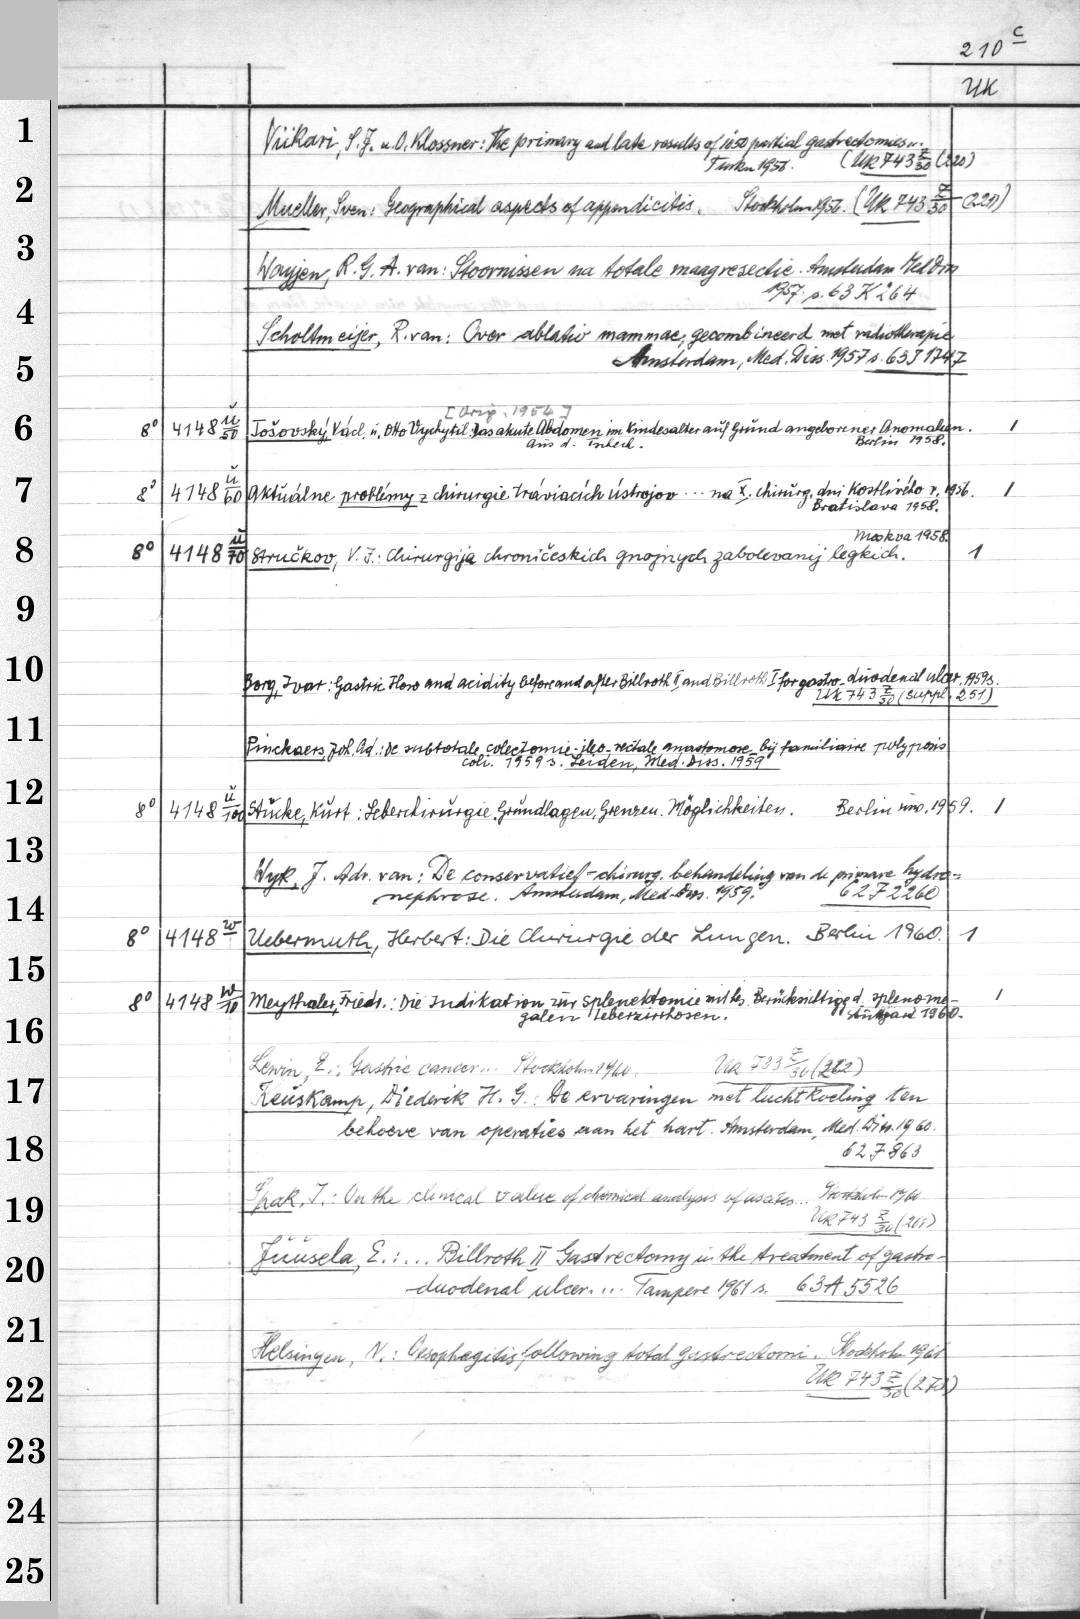 210 c
UK
1
Viikari, S. J. u. O. Klossner: The primary and late results of 1050 partial gastrectomies..
Turku 1956. (Uk 743 Z/30 (220)
2
Mueller, Sven: Geographical aspects of appendicitis. Stockholm 1956. (Uk 743 Z/30 (221)
3
Wayjen, R. G. A. van: Stoornissen na totale maagresectie. Amsterdam Med Diss
1957. s. 63 K 264
4
Scholtmeijer, R. van: Over ablatio mammae, gecombineerd met radiotherapie
5
Amsterdam, Med. Diss. 1957 s. 63 J 1747
[Orig. 1954]
6
8° 4148 ŭ/50 Tošovský, Václ. ŭ. Otto Vychytil: Das akute Abdomen im Kindesalter auf Grŭnd angeborener Anomalien. 1
aus d. Tschech. Berlin 1958.
7
8° 4148 ŭ/60 Aktuálne problémy z chirurgie tráviacích ústrojov ... na X. chirurg. dni Kostlivého v. 1956. 1
Bratislava 1958.
Moskva 1958.
8
8° 4148 ŭ/70 Stručkov, V. J.: Chirurgija chroničeskich gnojnych zabolevanij legkich. 1
9
10
Borg, Ivar: Gastric flow and acidity before and after Billroth II and Billroth I for gastro-duodenal ulcer. 1959 s.
UK 743 Z/30 (Suppl. 251)
11
Pinckaers, Joh. Ad.: De subtotale colectomie-ileo-rectale anastomose bij familiaire polyposis
coli. 1959 s. Leiden, Med. Diss. 1959
12
8° 4148 ŭ/100 Stŭcke, Kŭrt: Leberchirŭrgie. Grŭndlagen, Grenzen. Möglichkeiten. Berlin usw. 1959. 1
13
Wyk, J. Adr. van: De conservatief-chirurg. behandeling van de primare hydro=
nephrose. Amsterdam, Med. Diss. 1959. 62 F 2260
14
8° 4148 w Uebermuth, Herbert: Die Chirurgie der Lungen. Berlin 1960. 1
15
8° 4148 w/10 Meythaler, Friedr.: Die Indikation zŭr Splenektomie mit bes. Berücksichtigg d. splenome- 1
16
galen Leberzirrhosen. Stŭttgart 1960.
Lewin, E.: Gastric cancer... Stockholm 1960. Uk 733 Z/30 (262)
17
Keŭskamp, Diederik H. G.: De ervaringen met luchtkoeling ten
behoeve van operaties aan het hart. Amsterdam, Med. Diss. 1960.
18
62 F 863
19
Spak, I.: On the clinical value of chemical analysis of ascites... Stockholm 1960
UK 743 Z/30 (261)
20
Jŭŭsela, E.: ... Billroth II Gastrectomy in the treatment of gastro-
duodenal ulcer.... Tampere 1961 s. 63 A 5526
21
Helsingen, N.: Oesophagitis following total gastrectomi. Stockholm 1961
22
UK 743 Z/30 (273)
23
24
25